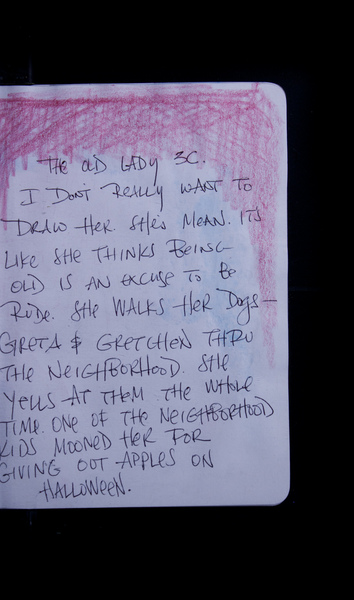 THE OLD LADY 3C.
I DON'T REALLY WANT TO
DRAW HER. SHE'S MEAN. IT'S
LIKE SHE THINKS BEING
OLD IS AN EXCUSE TO BE
RUDE. SHE WALKS HER DOGS—
GRETA & GRETCHEN THRU
THE NEIGHBORHOOD. SHE
YELLS AT THEM THE WHOLE
TIME. ONE OF THE NEIGHBORHOOD
KIDS MOONED HER FOR
GIVING OUT APPLES ON
HALLOWEEN.